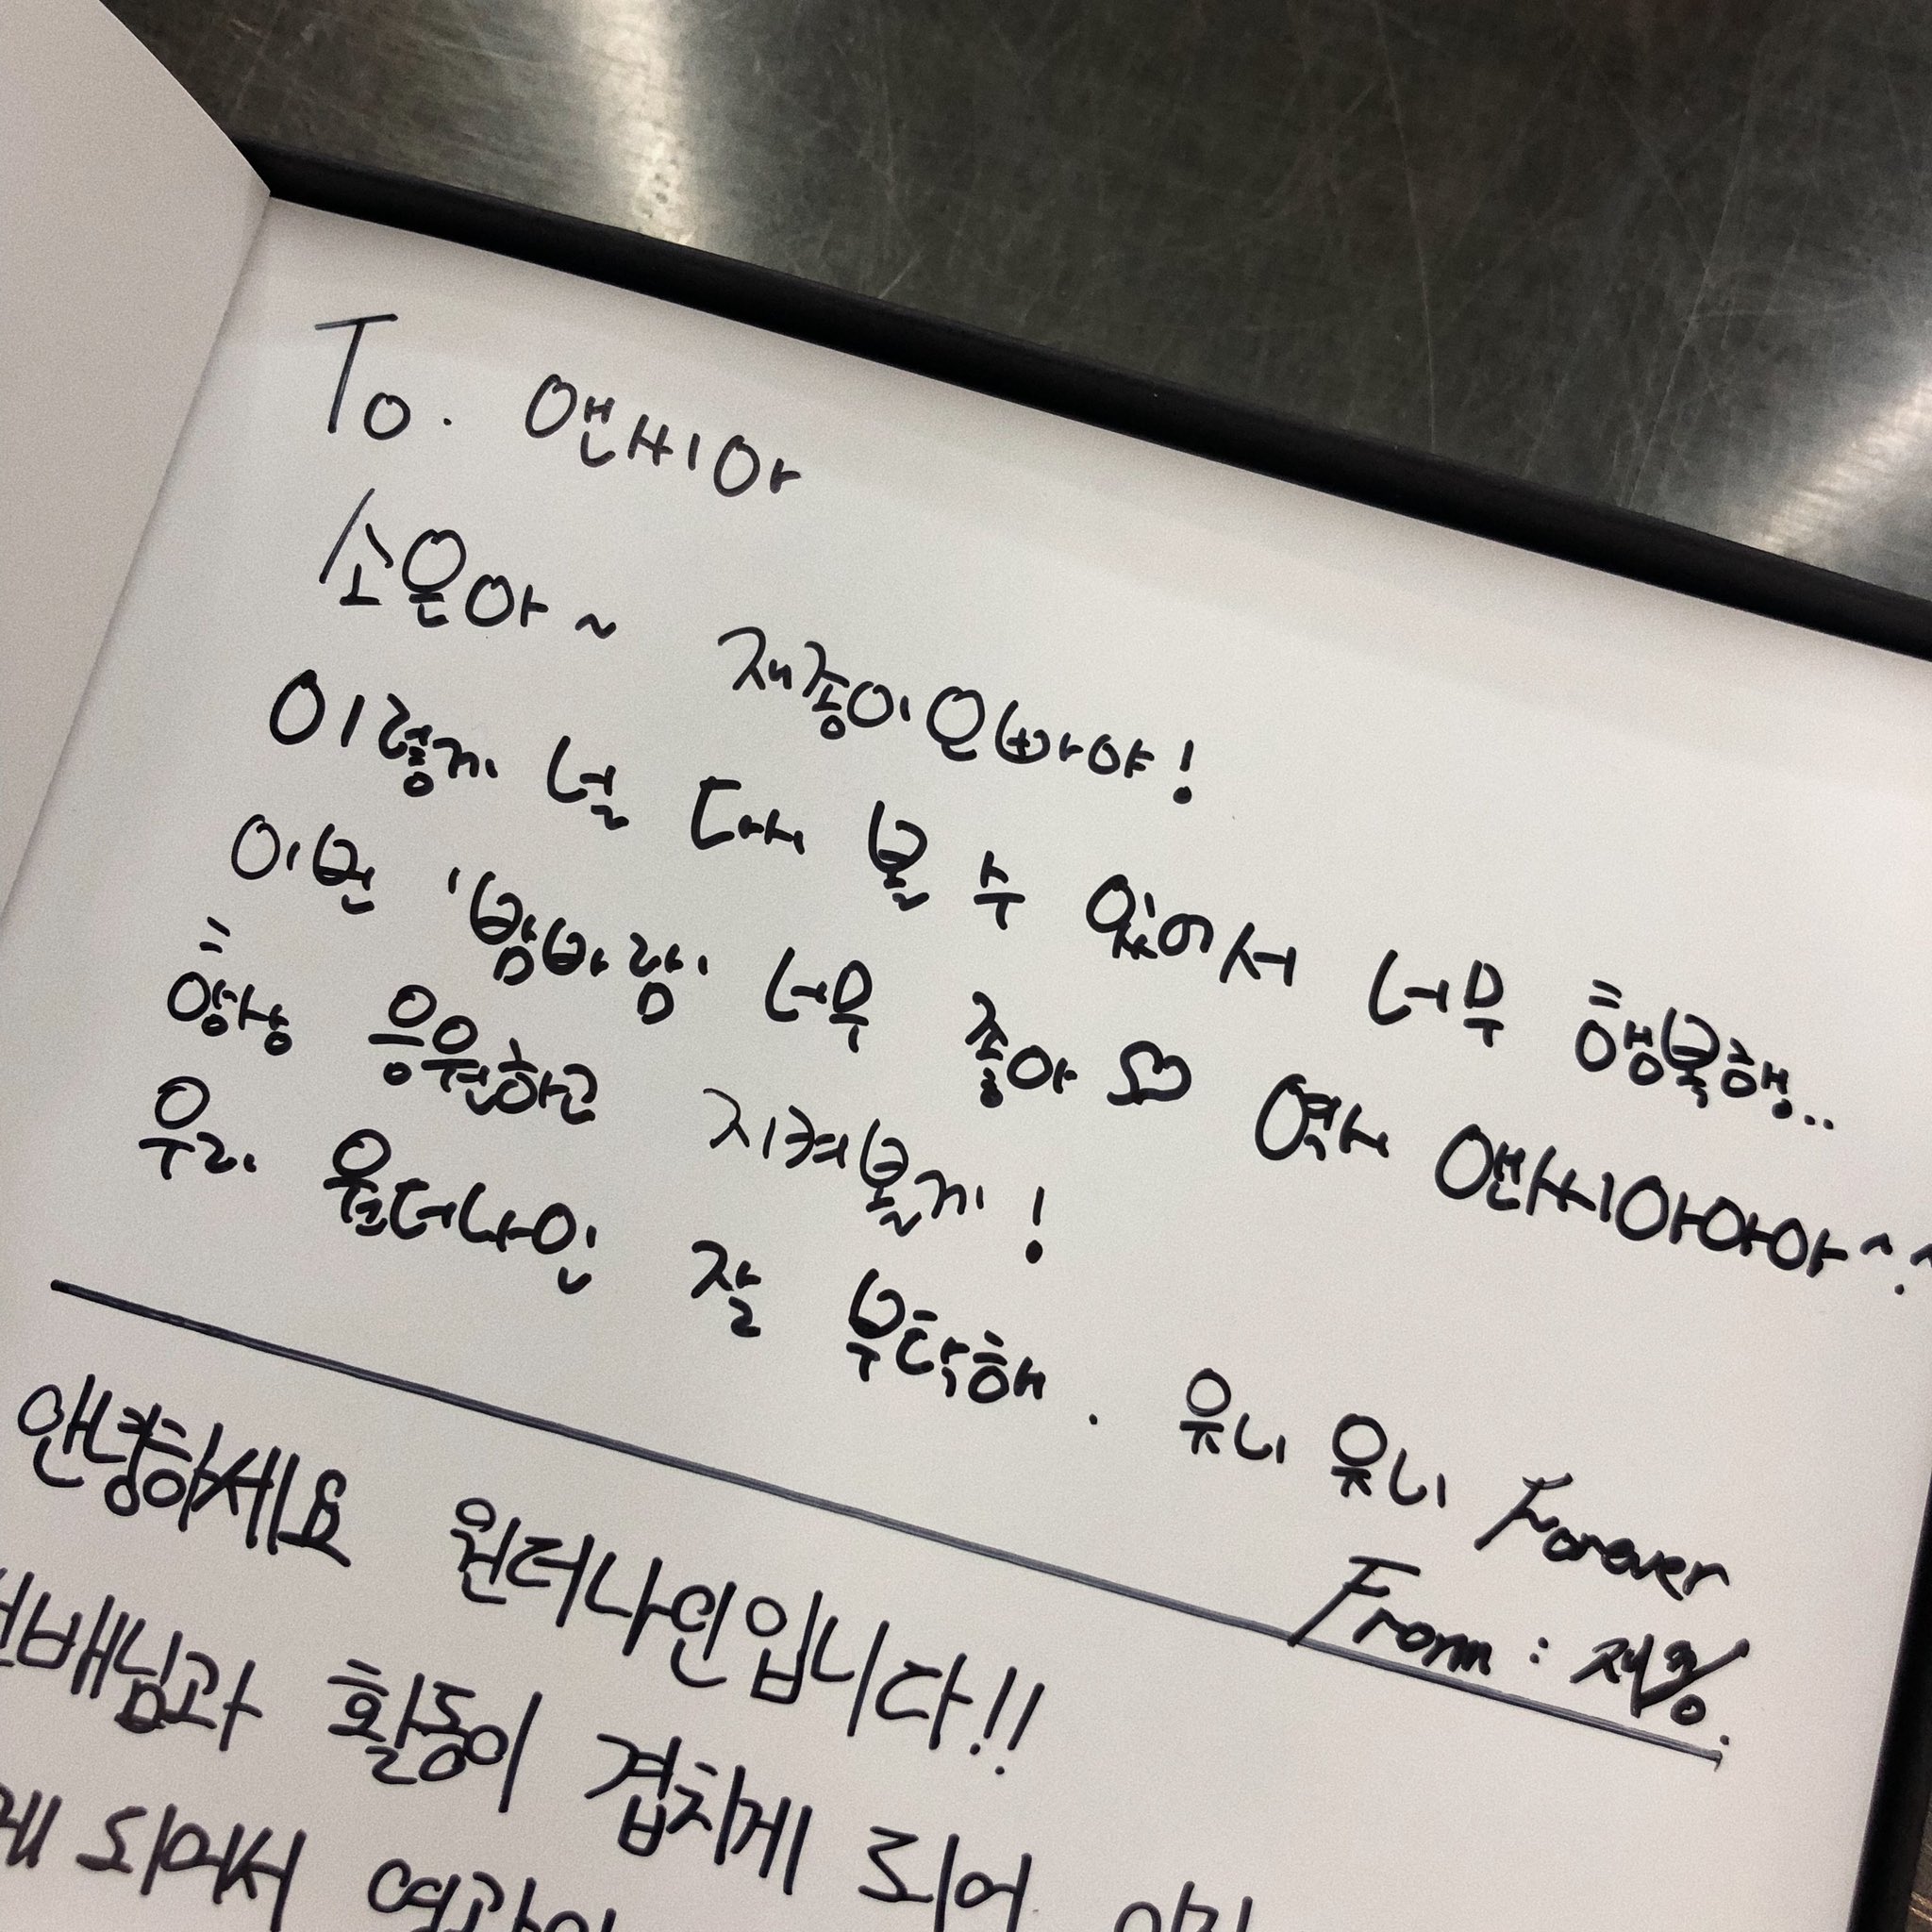 To. 앤씨아
소은아~ 재종이오빠야!
이렇게 널 다시 볼 수 있어서 너무 행복해..
이번 '밤바람' 너무 좋아♡ 역시 앤씨아아아^^
항상 응원하고 지켜볼게!
우리 원더나인 잘 부탁해. 유니 유니 Forever
From : 재종.
안녕하세요 원더나인입니다!!
선배님과 활동이 겹치게 되어
게 되어서